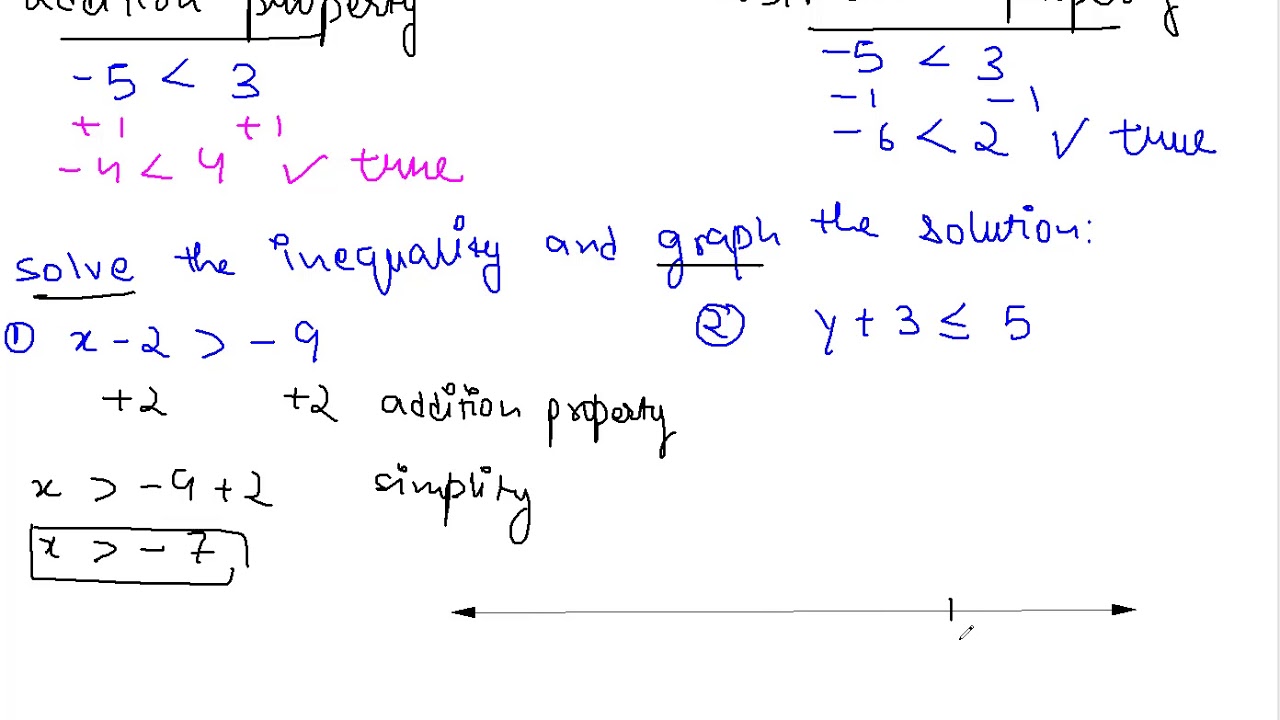 addition property
property
-5 < 3
+1 +1
-4 < 4 ✓ true
-5 < 3
-1 -1
-6 < 2 ✓ true
solve the inequality and graph the solution:
① x - 2 > - 9
+2 +2 addition property
x > -9 + 2 simplify
x > - 7
② y + 3 ≤ 5